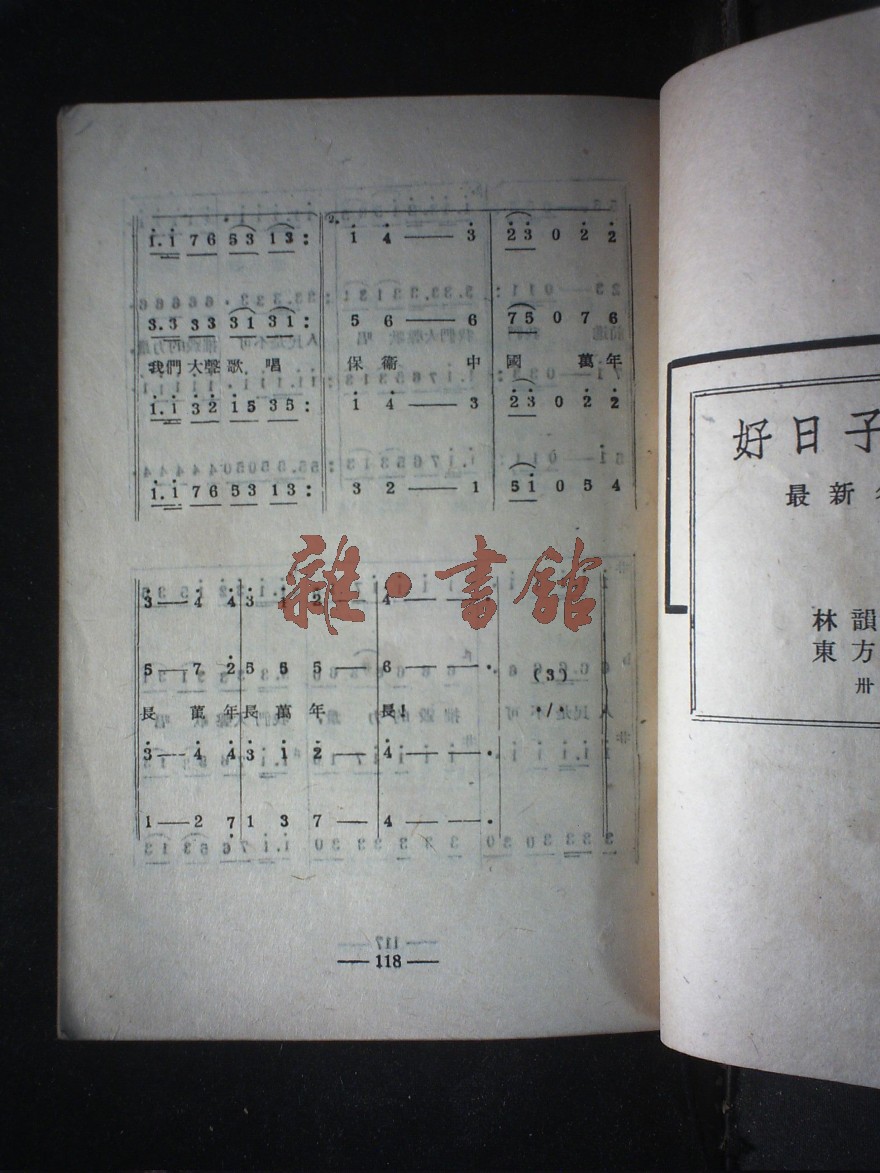 2.
1.1 76 53 13: 1 4 — 3 23 0 2 2
3.3 33 31 31: 5 6 — 6 75 0 7 6
我們大聲歌唱 保衞中國萬年
1.1 32 15 35: 1 4 — 3 23 0 2 2
1.1 76 53 13: 3 2 — 1 51 0 5 4
雜·書館
3 — 4 4 3 1 2 — 4 — — ·
5 — 7 2 5 5 5 — 6 — — · (3)
長萬年長萬年長! ·/·
3 — 4 4 3 1 2 — 4 — — ·
1 — 2 7 1 3 7 — 4 — — ·
— 118 —
好日子
最新
林韻
東方
卅